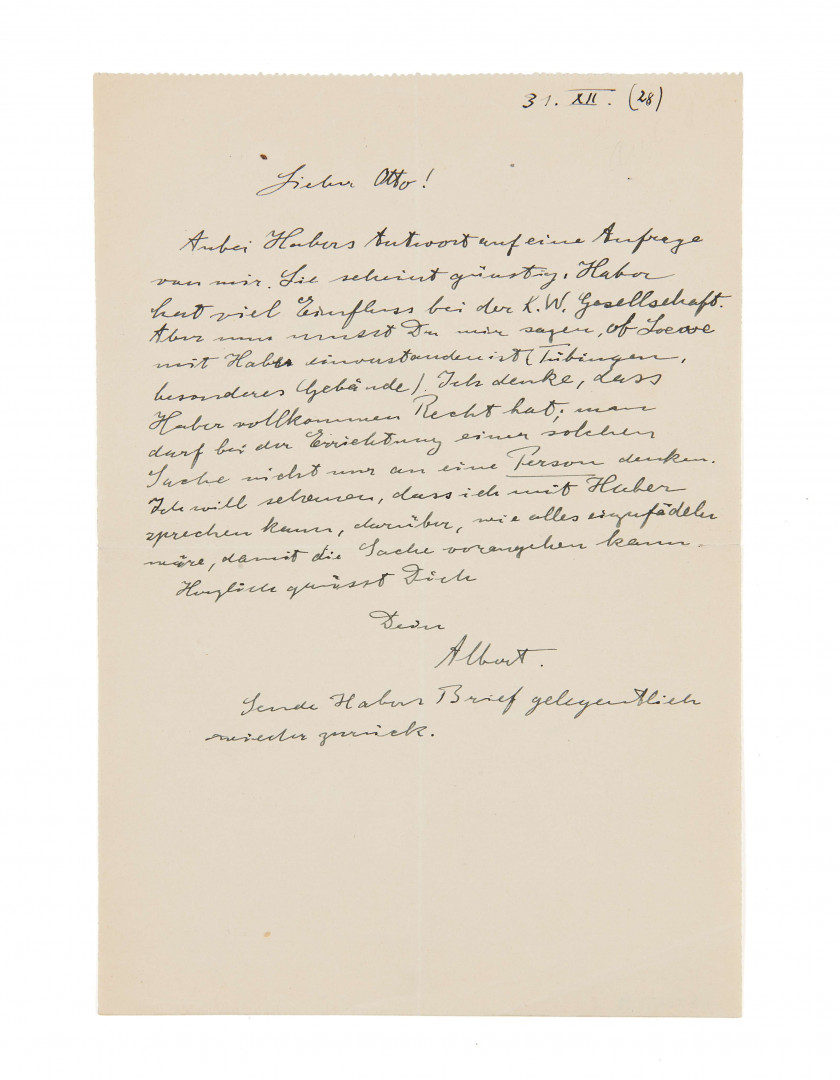 31. XII. (28)
Lieber Otto!
Anbei Habers Antwort auf eine Anfrage
von mir. Sie scheint günstig. Haber
hat viel Einfluss bei der K.W. Gesellschaft.
Aber nun musst Du mir sagen, ob Loewe
mit Haber einverstanden ist (Tübingen,
besonderes Gebäude). Ich denke, dass
Haber vollkommen Recht hat; man
darf bei der Errichtung einer solchen
Sache nicht nur an eine Person denken.
Ich will schauen, dass ich mit Haber
sprechen kann, darüber, wie alles einzufädeln
wäre, damit die Sache vorangehen kann.
Herzlich grüsst Dich
Dein
Albert.
Sende Habers Brief gelegentlich
wieder zurück.